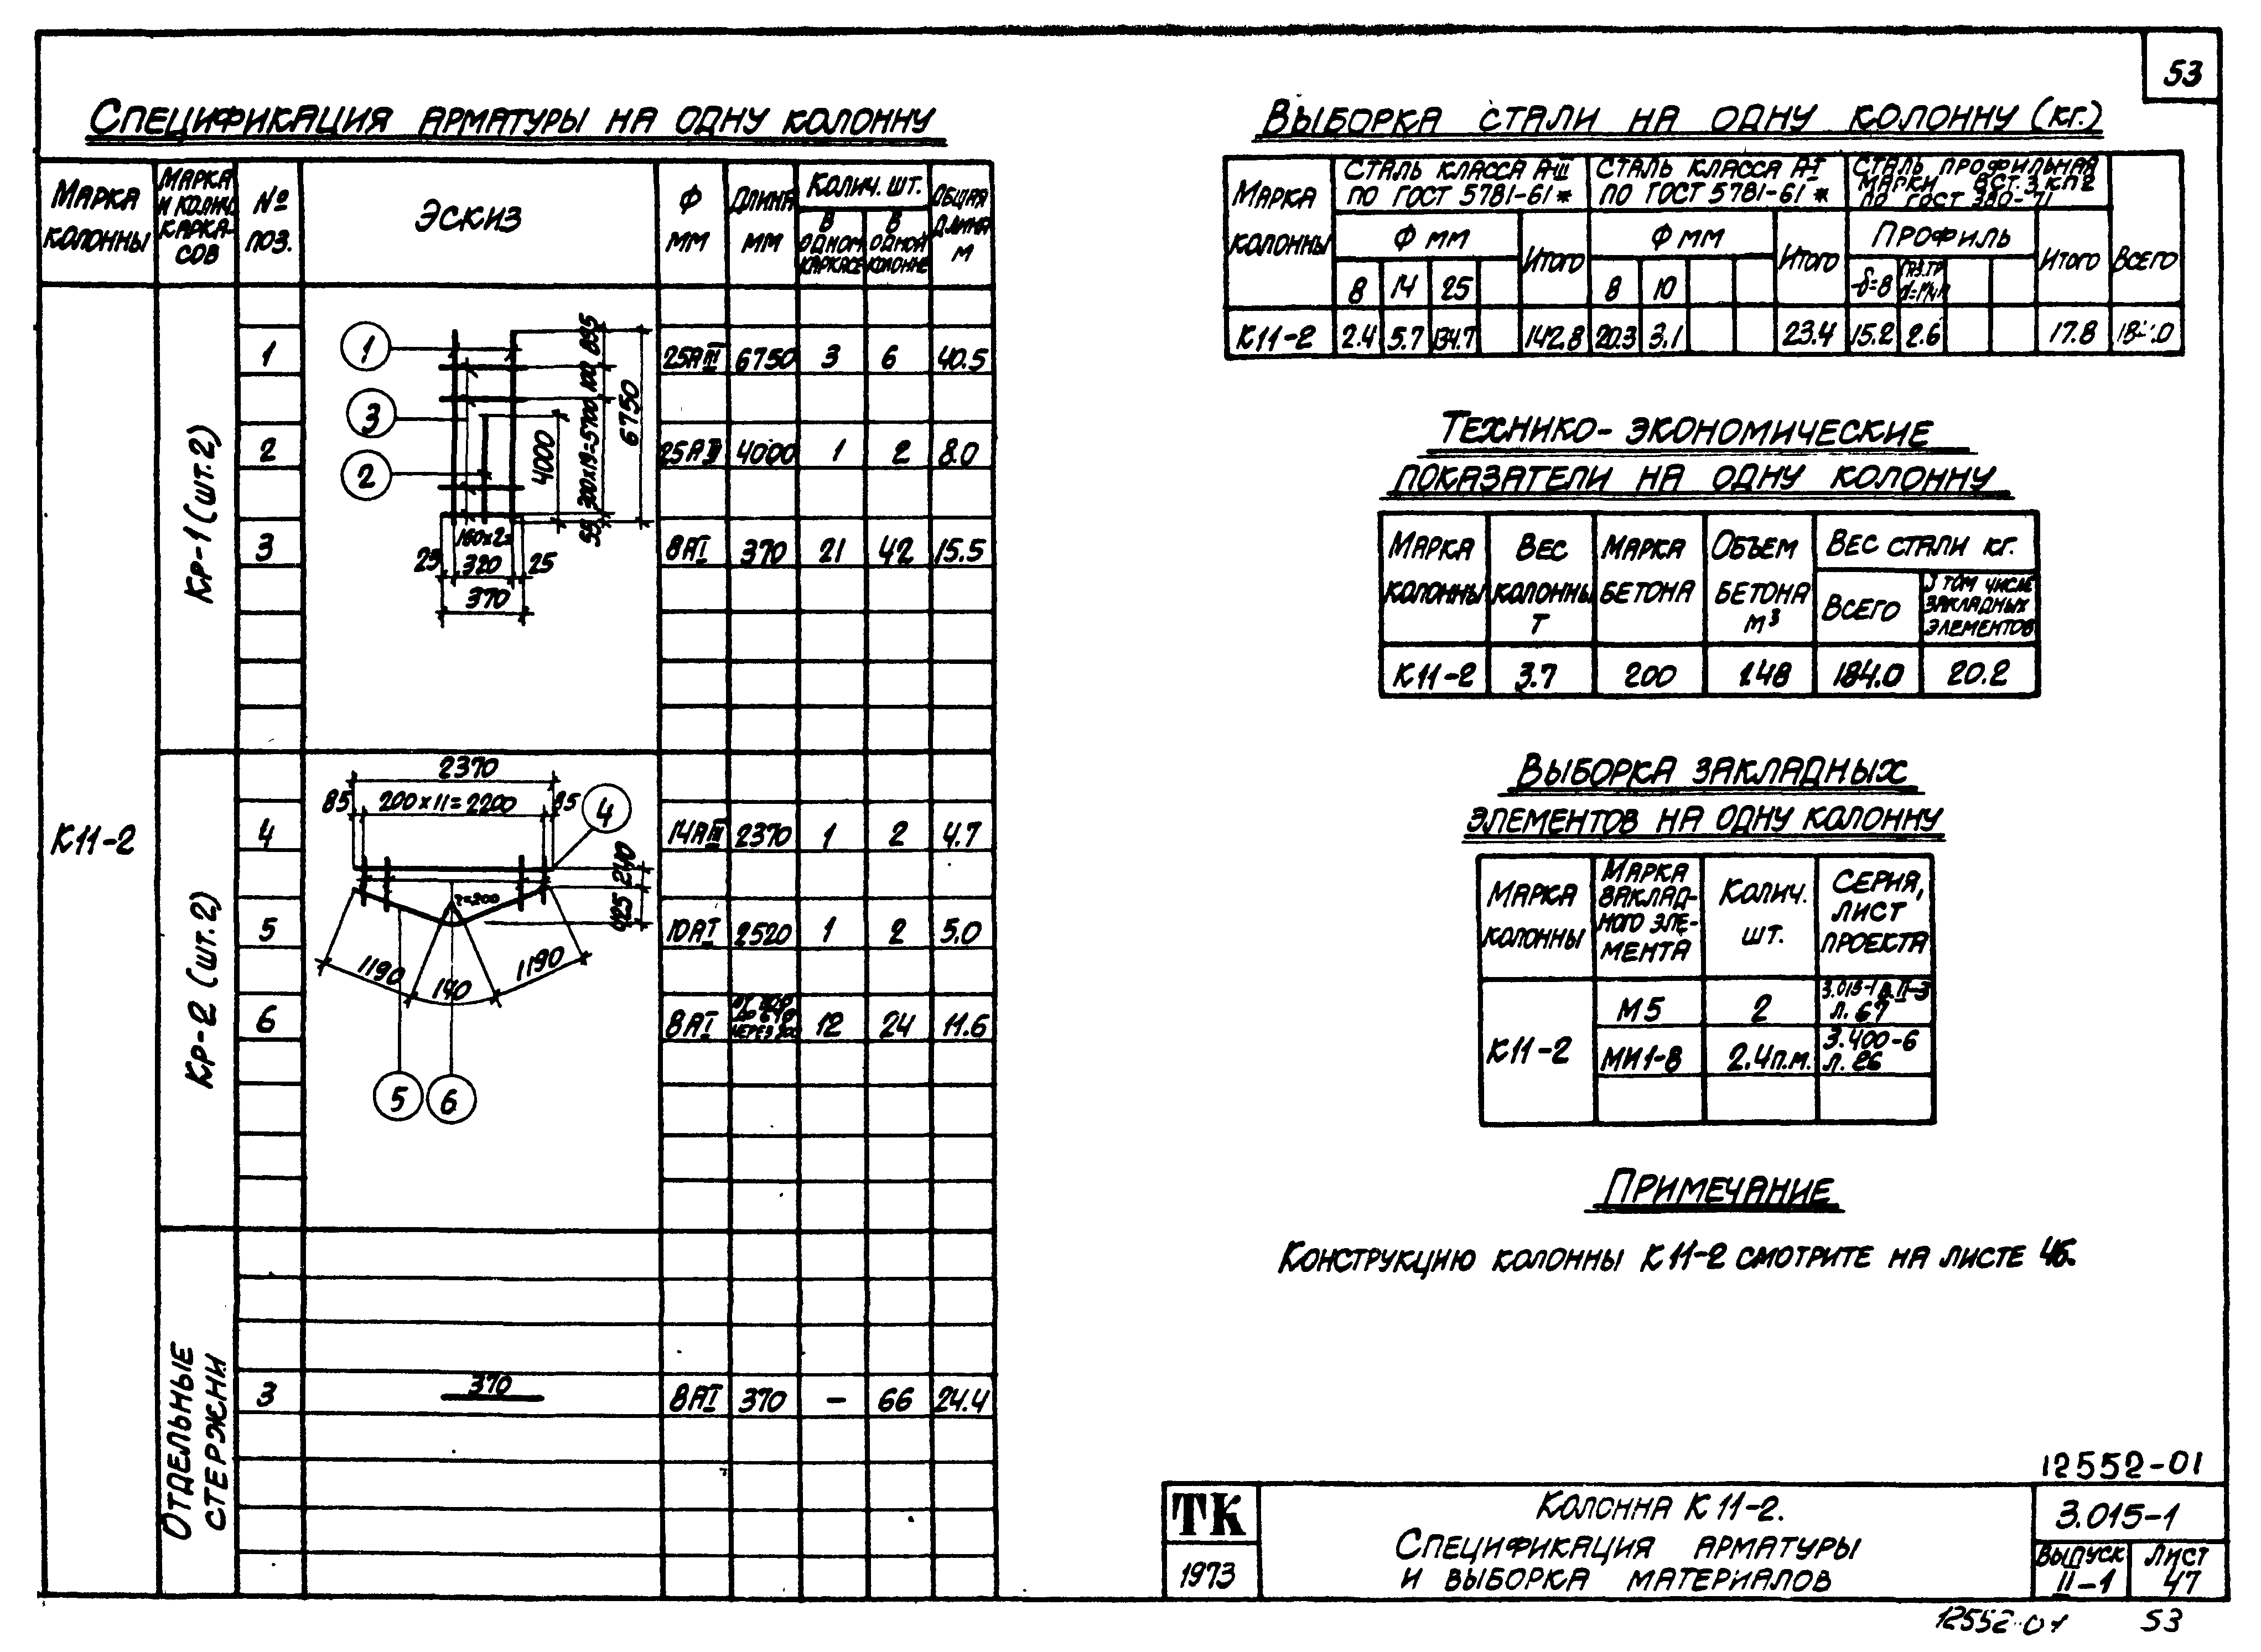 53
Спецификация арматуры на одну колонну
Марка колонны
Марка и колич. каркасов
№ поз.
Эскиз
Ф мм
Длина мм
Колич. шт.
в одном каркасе
в одной колонне
Общая длина м
К11-2
Кр-1 (шт. 2)
1 25АIII 6750 3 6 40.5
2 25АIII 4000 1 2 8.0
3 8АI 370 21 42 15.5
1
3
2
895
100
300х19=5700
55
6750
4000
160х2=
25 320 25
370
Кр-2 (шт. 2)
4 14АIII 2370 1 2 4.7
5 10АI 2520 1 2 5.0
6 8АI 12 24 11.6
2370
85 200х11=2200 85
4
240
425
r=200
1190 140 1190
5 6
Отдельные стержни
3 370 8АI 370 - 66 24.4
Выборка стали на одну колонну (кг.)
Марка колонны
Сталь класса А-III по ГОСТ 5781-61*
Сталь класса А-I по ГОСТ 5781-61*
Сталь профильная марки ВСт.3 кп2 по ГОСТ 380-71
Ф мм
Итого
Ф мм
Итого
Профиль
Итого
Всего
8 14 25 8 10 -δ=8
К11-2 2.4 5.7 134.7 142.8 20.3 3.1 23.4 15.2 2.6 17.8
Технико-экономические
показатели на одну колонну
Марка колонны
Вес колонны т
Марка бетона
Объем бетона м³
Вес стали кг.
Всего
в том числе закладных элементов
К11-2 3.7 200 1.48 184.0 20.2
Выборка закладных
элементов на одну колонну
Марка колонны
Марка закладного элемента
Колич. шт.
Серия, лист проекта
К11-2
М5 2 3.015-1 в. II-3 л. 67
МИ1-8 2.4п.м. 3.400-6 л. 26
Примечание
Конструкцию колонны К11-2 смотрите на листе 46.
12552-01
ТК
1973
Колонна К11-2.
Спецификация арматуры
и выборка материалов
3.015-1
Выпуск II-1
Лист 47
12552-01 53